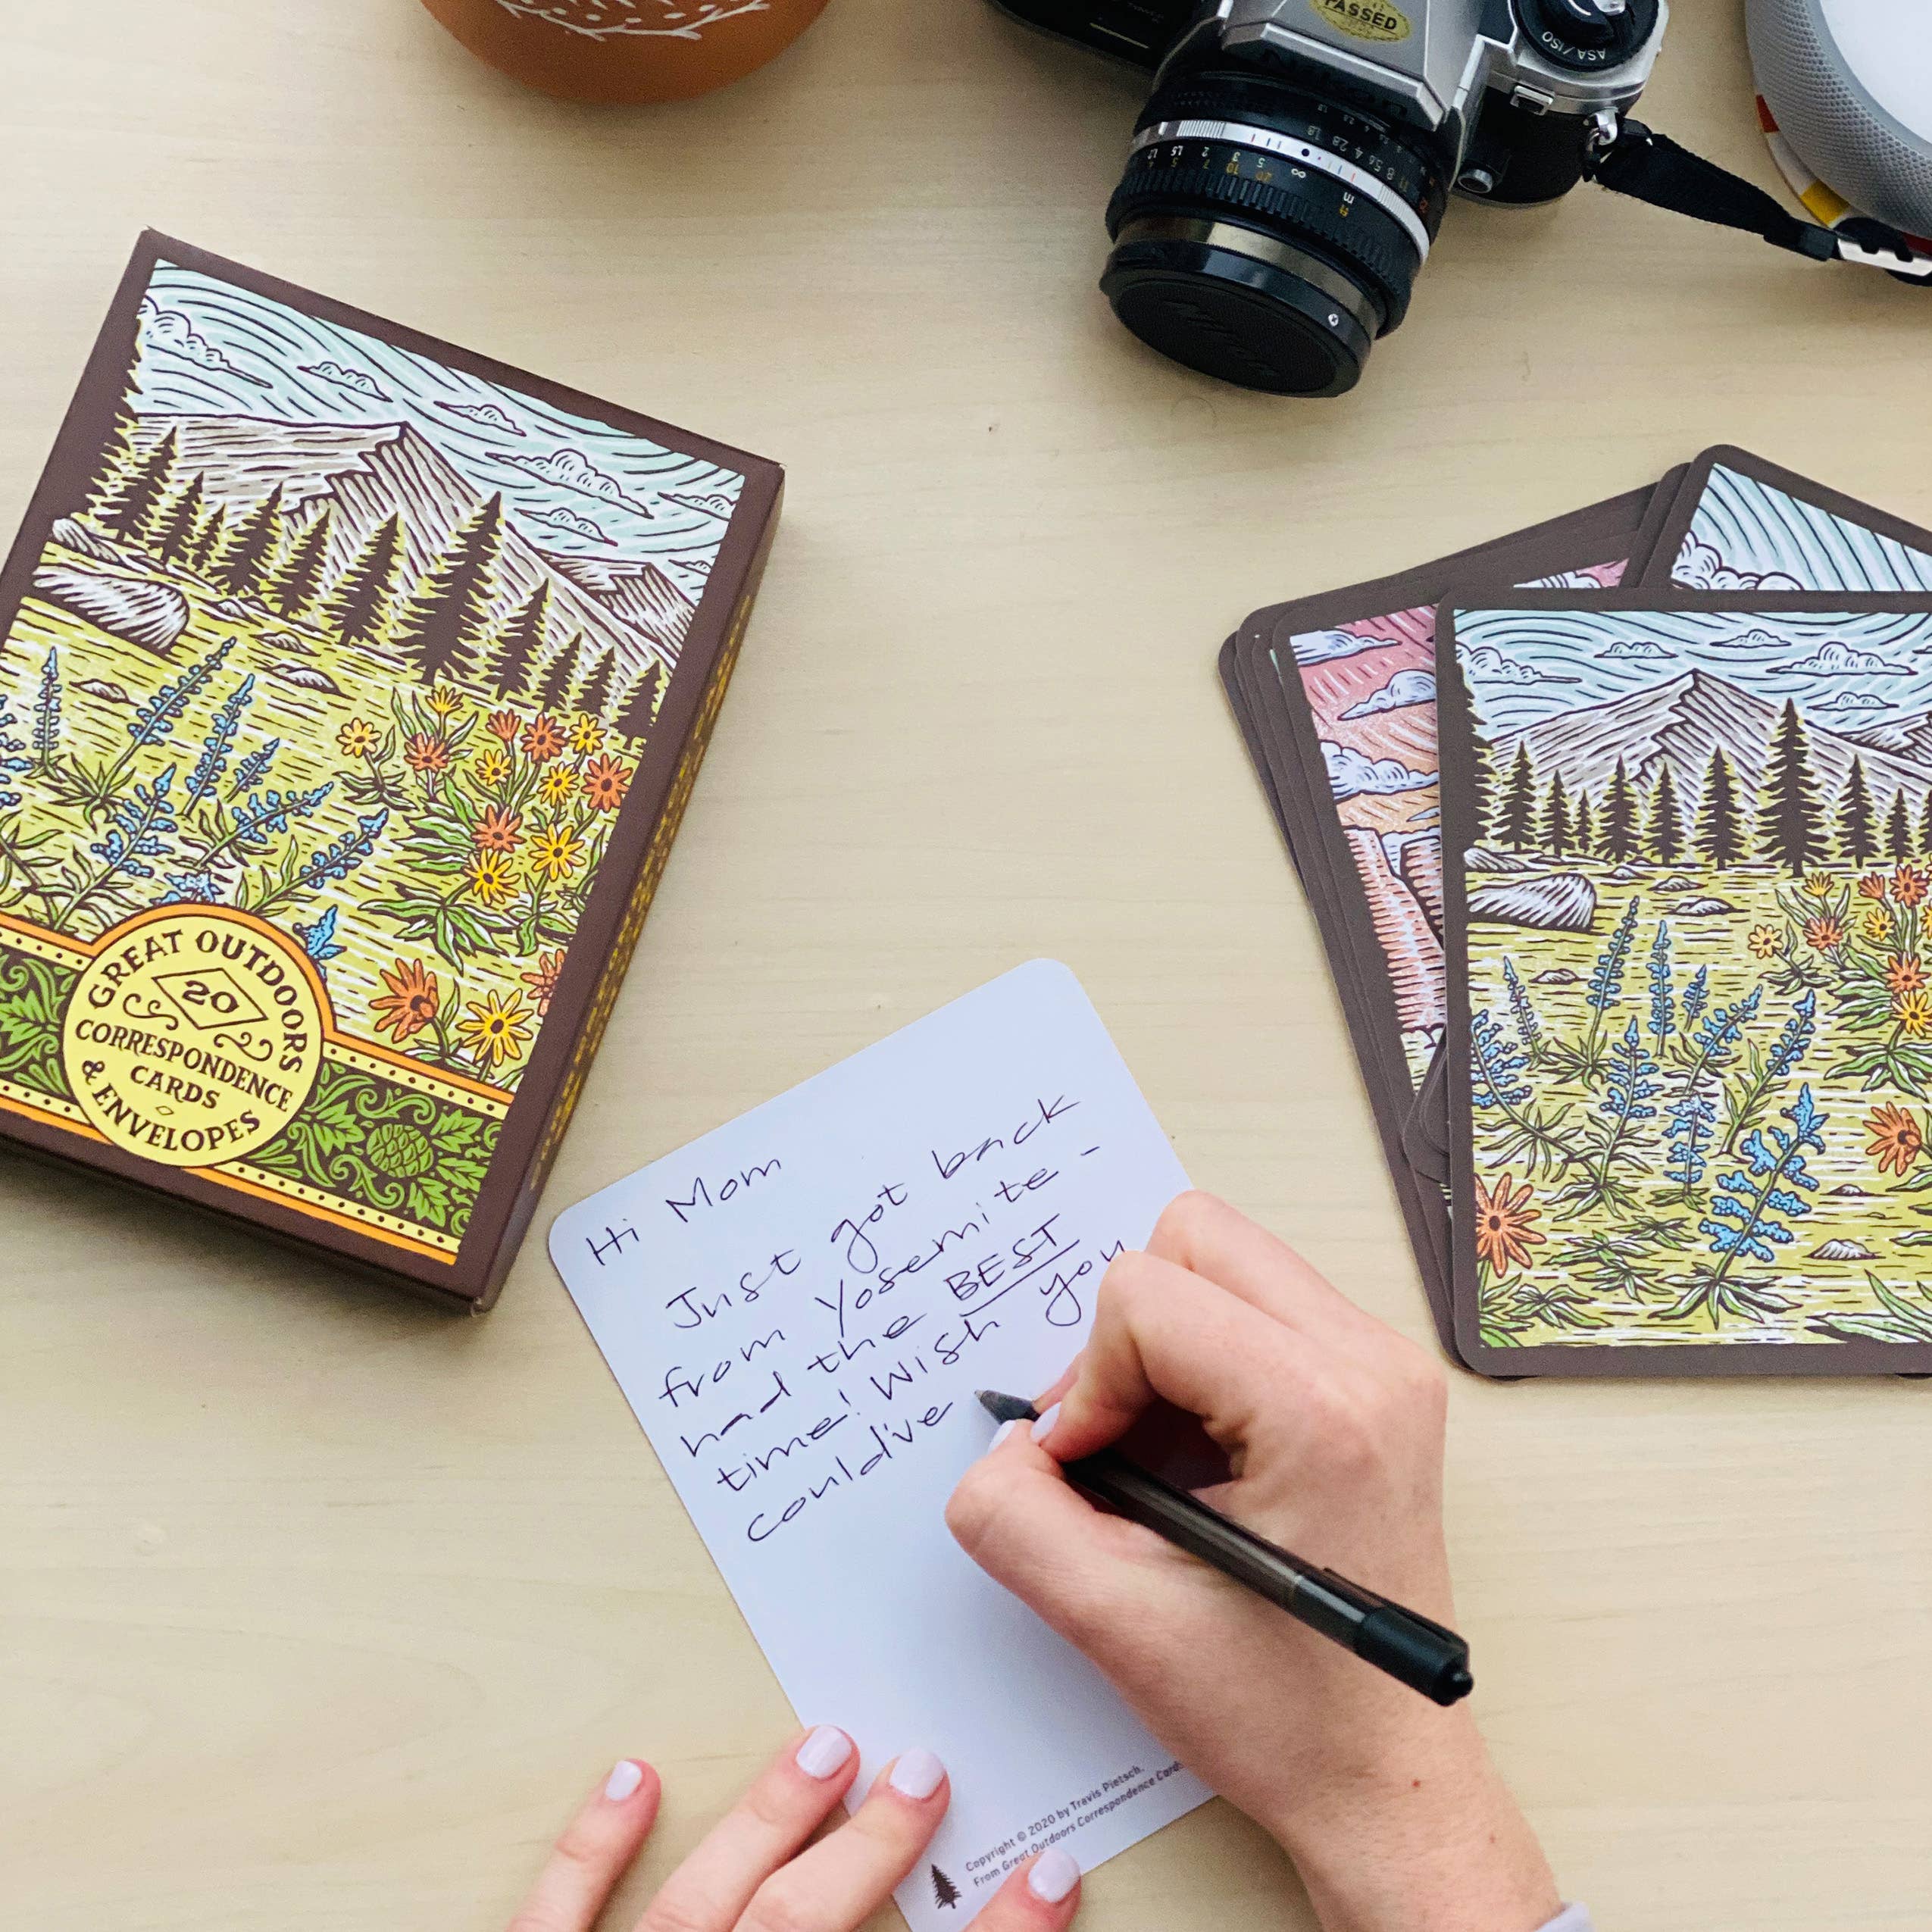 PASSED
ASA/ISO
Nikon
GREAT OUTDOORS
20
CORRESPONDENCE
CARDS
& ENVELOPES
Hi Mom
Just got back
from Yosemite -
had the BEST
time! Wish you
could've
Copyright © 2020 by Travis Pietsch.
From Great Outdoors Correspondence Cards